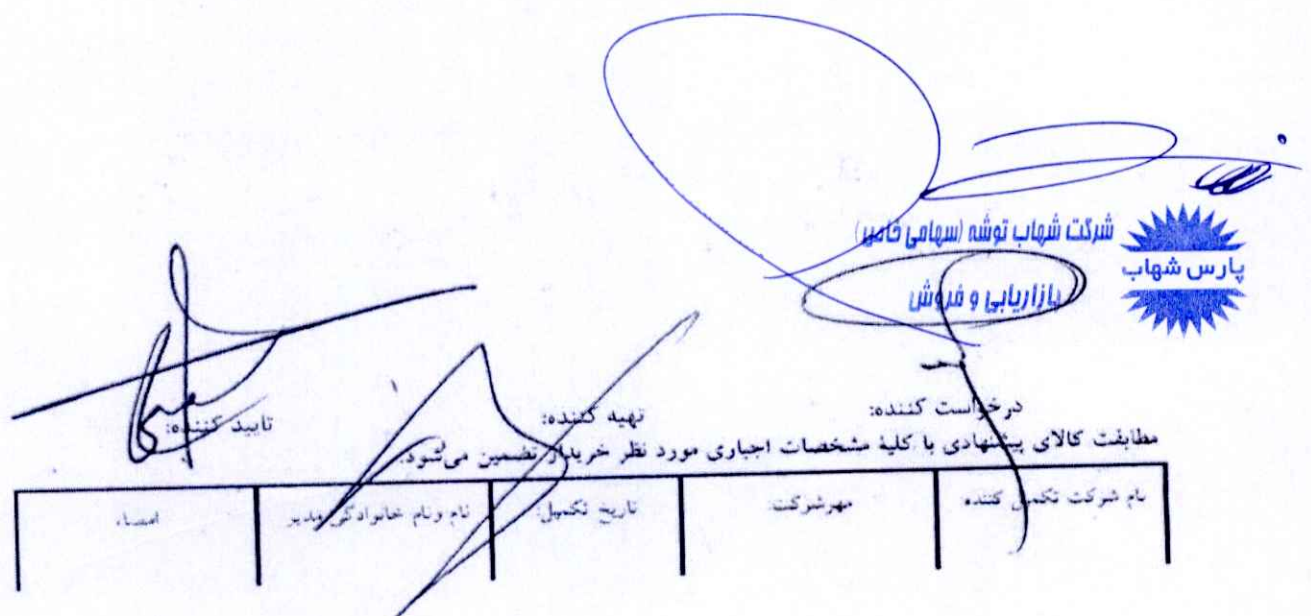 شرکت شهاب توشه (سهامی خاص)
پارس شهاب
بازاریابی و فروش
درخواست کننده: تهیه کننده: تایید کننده:
مطابقت کالای پیشنهادی با کلیهٔ مشخصات اجباری مورد نظر خریدار تضمین می‌شود.
نام شرکت تکمیل کننده مهرشرکت تاریخ تکمیل: نام ونام خانوادگی مدیر امضاء